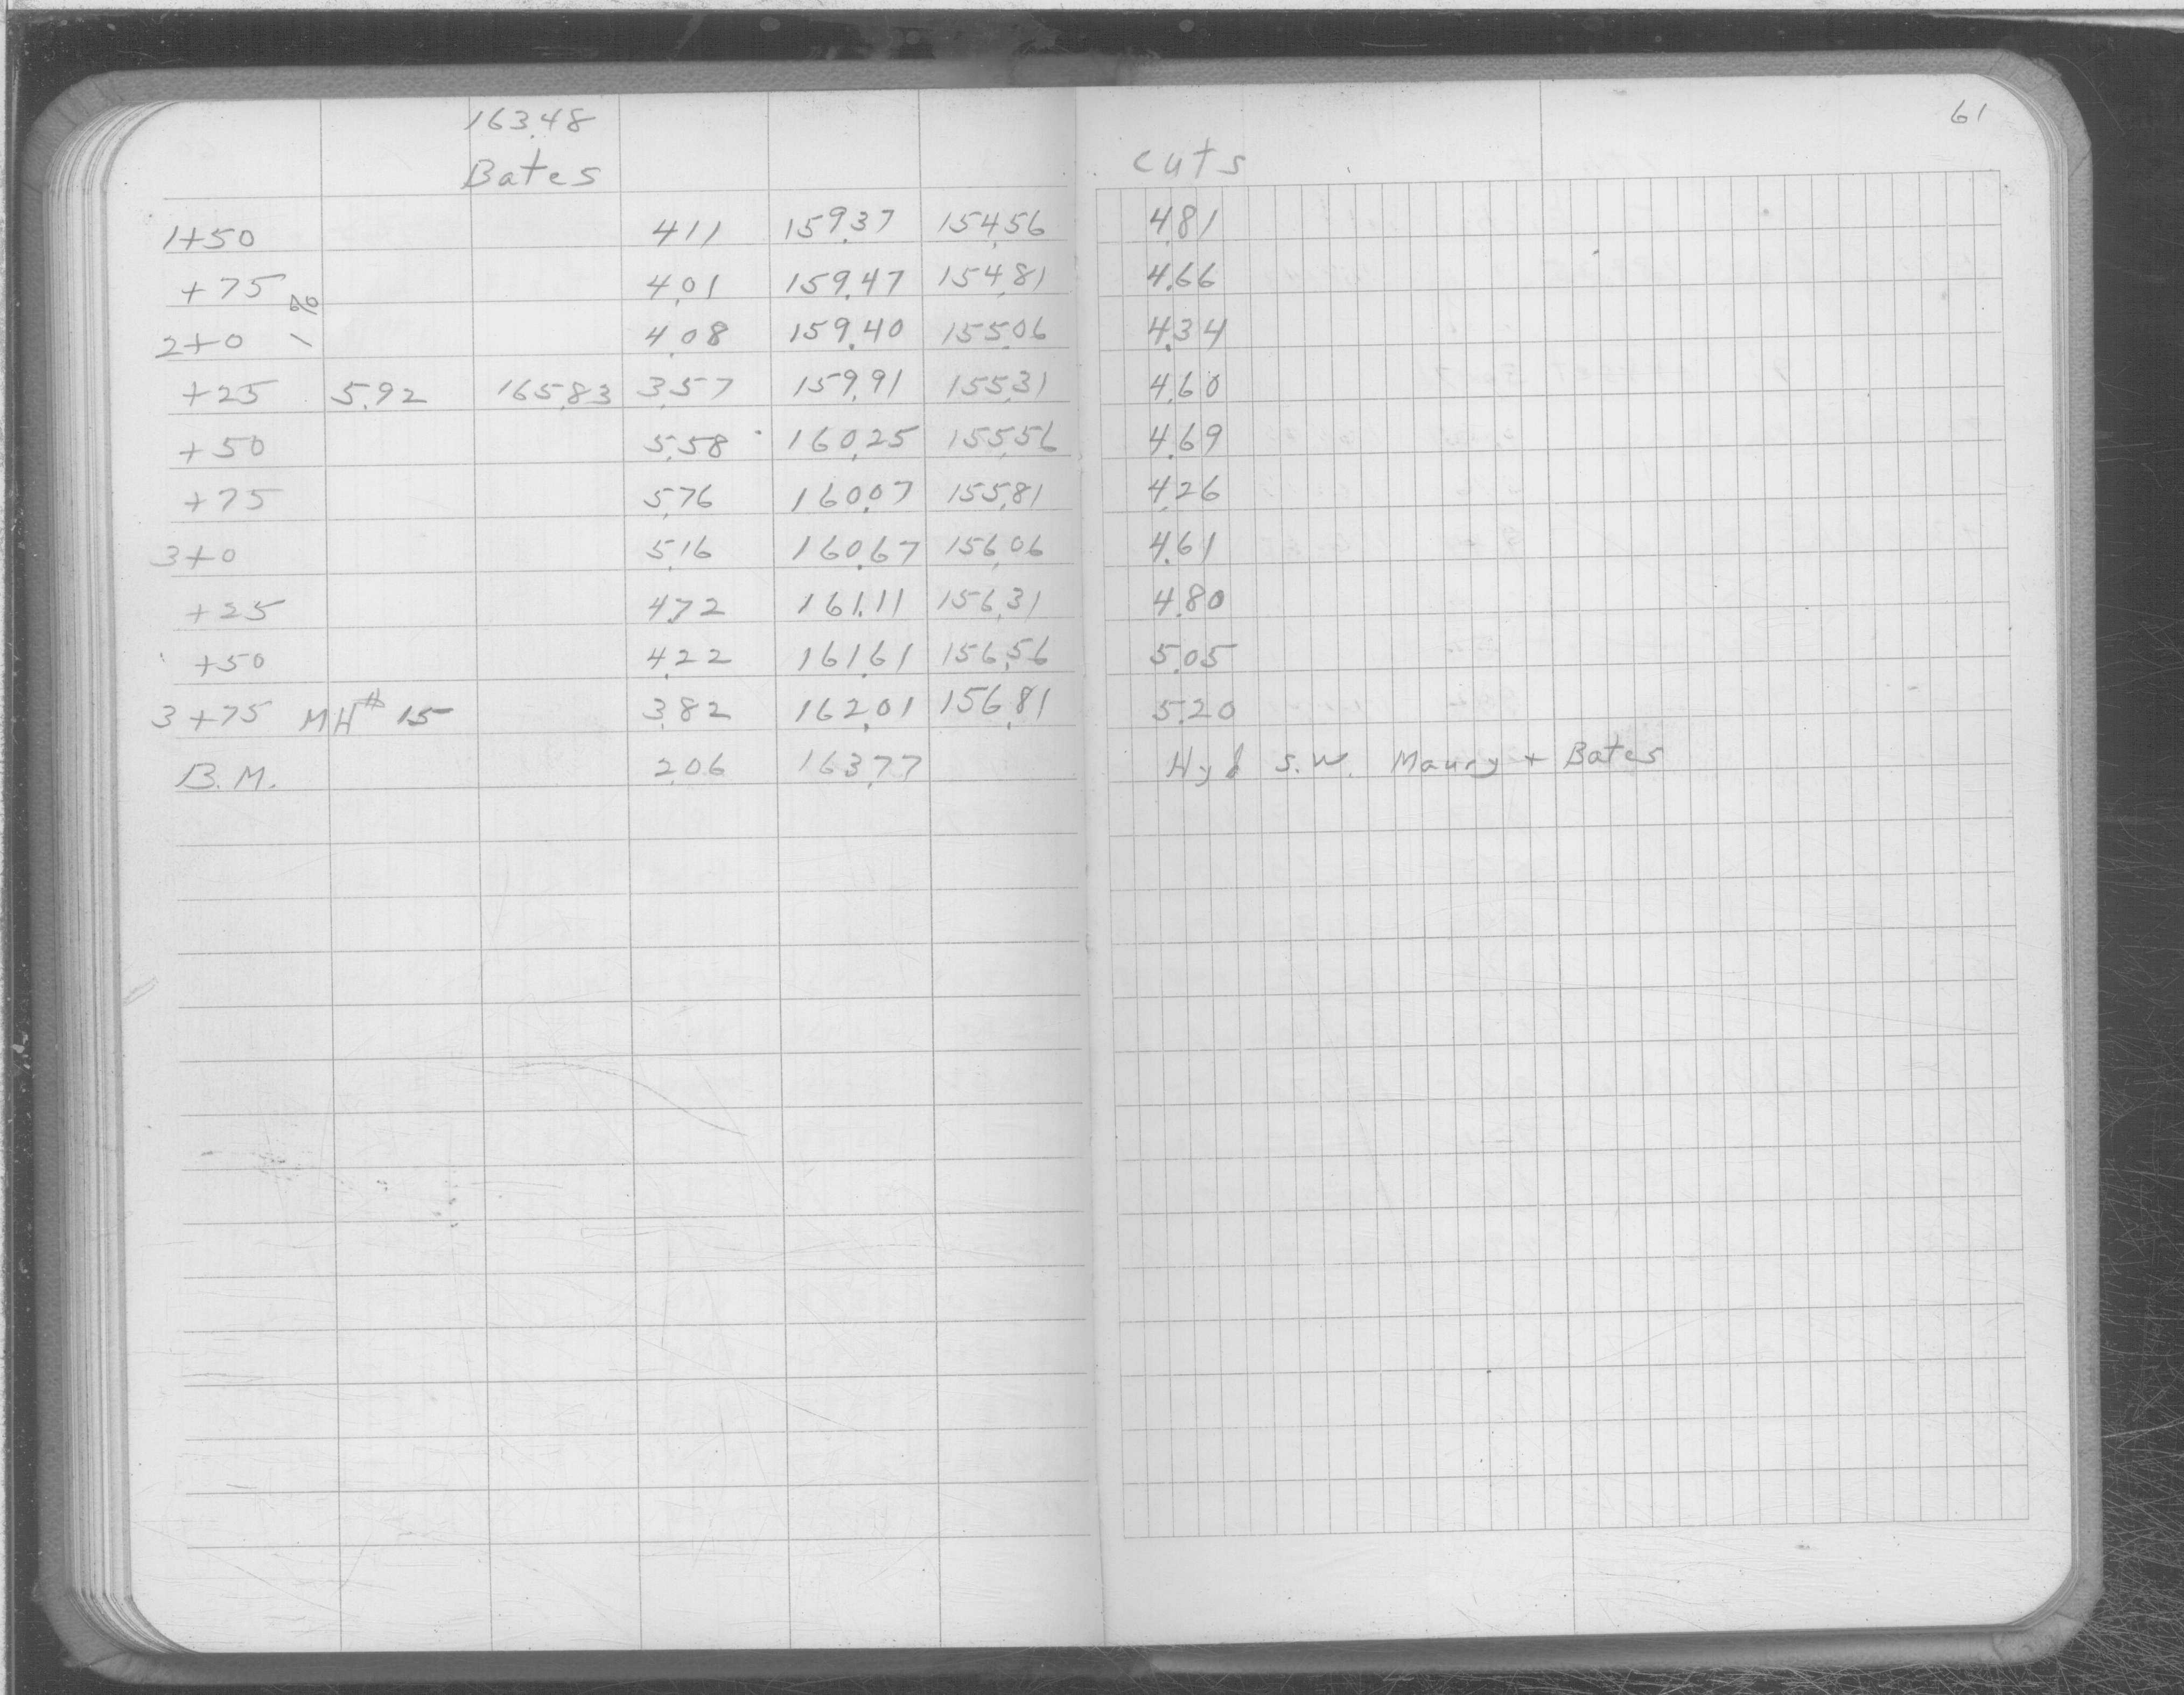 163.48
61
Bates
cuts
1+50 4.11 159.37 154.56 4.81
+75 4.01 159.47 154.81 4.66
2+0 4.08 159.40 155.06 4.34
+25 5.92 165.83 3.57 159.91 155.31 4.60
+50 5.58 160.25 155.56 4.69
+75 5.76 160.07 155.81 4.26
3+0 5.16 160.67 156.06 4.61
+25 4.72 161.11 156.31 4.80
+50 4.22 161.61 156.56 5.05
3+75 MH# 15 3.82 162.01 156.81 5.20
B.M. 2.06 163.77 Hyd S.W. Maury + Bates